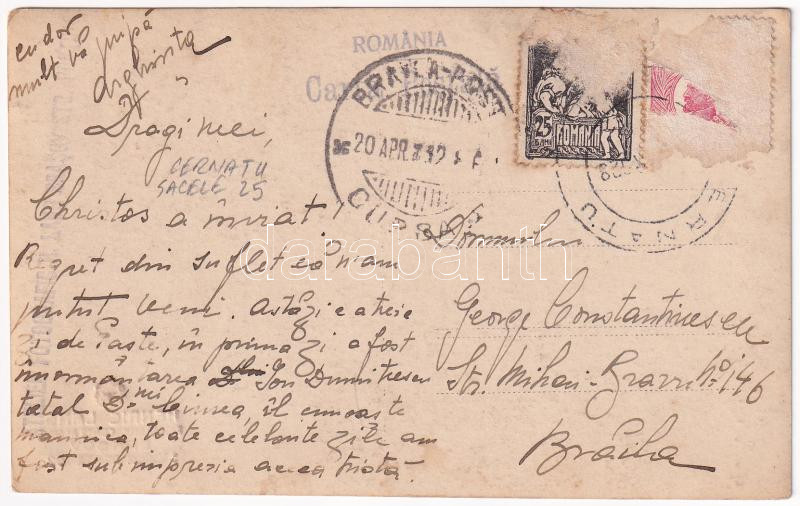 cu dor
mult vă pupă
ROMÂNIA
BRAILA-POST
20 APR. 932
25
BANI
ROMANIA
CERNATU
Dragii mei,
CERNATU
SACELE 25
Christos a înviat!
Regret din suflet că n'am
putut veni. Astăzi e a treia
zi de Paste, în prima zi a fost
inormântarea Dlui Ion Dumitrescu
tatal D-nei, îl cunoaste
mamica, toate celelante zile am
fost sub impresia aceea tristă.
Domnului
George Constantinescu
Str. Mihai-Bravu No 146
Brăila
darabanth